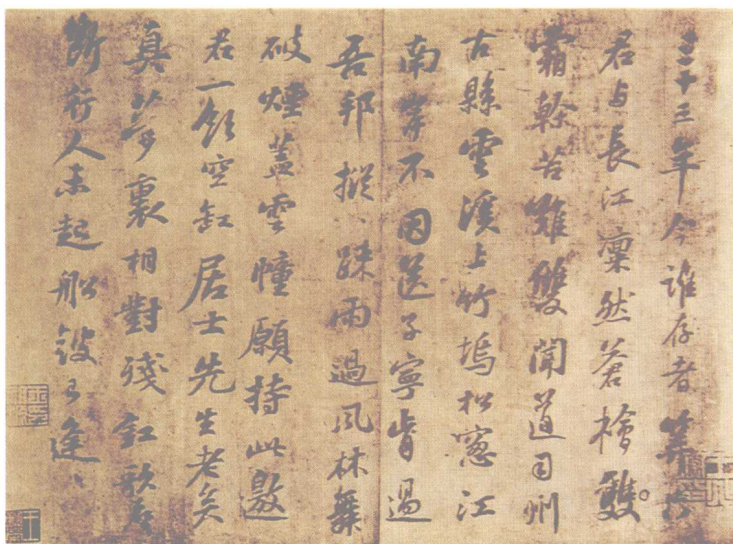 三十三年今誰存者算只
君与長江凜然蒼檜雙
霜榦苦難雙聞道司州
古縣雲溪上竹塢松窓江
南岸不因送子寧肯過
吾邦摐々踈雨過風林舞
破煙蓋雲幢願持此邀
君一飲空缸居士先生老矣
真夢裏相對殘釭歌聲
斷行人未起船鼓已逢々